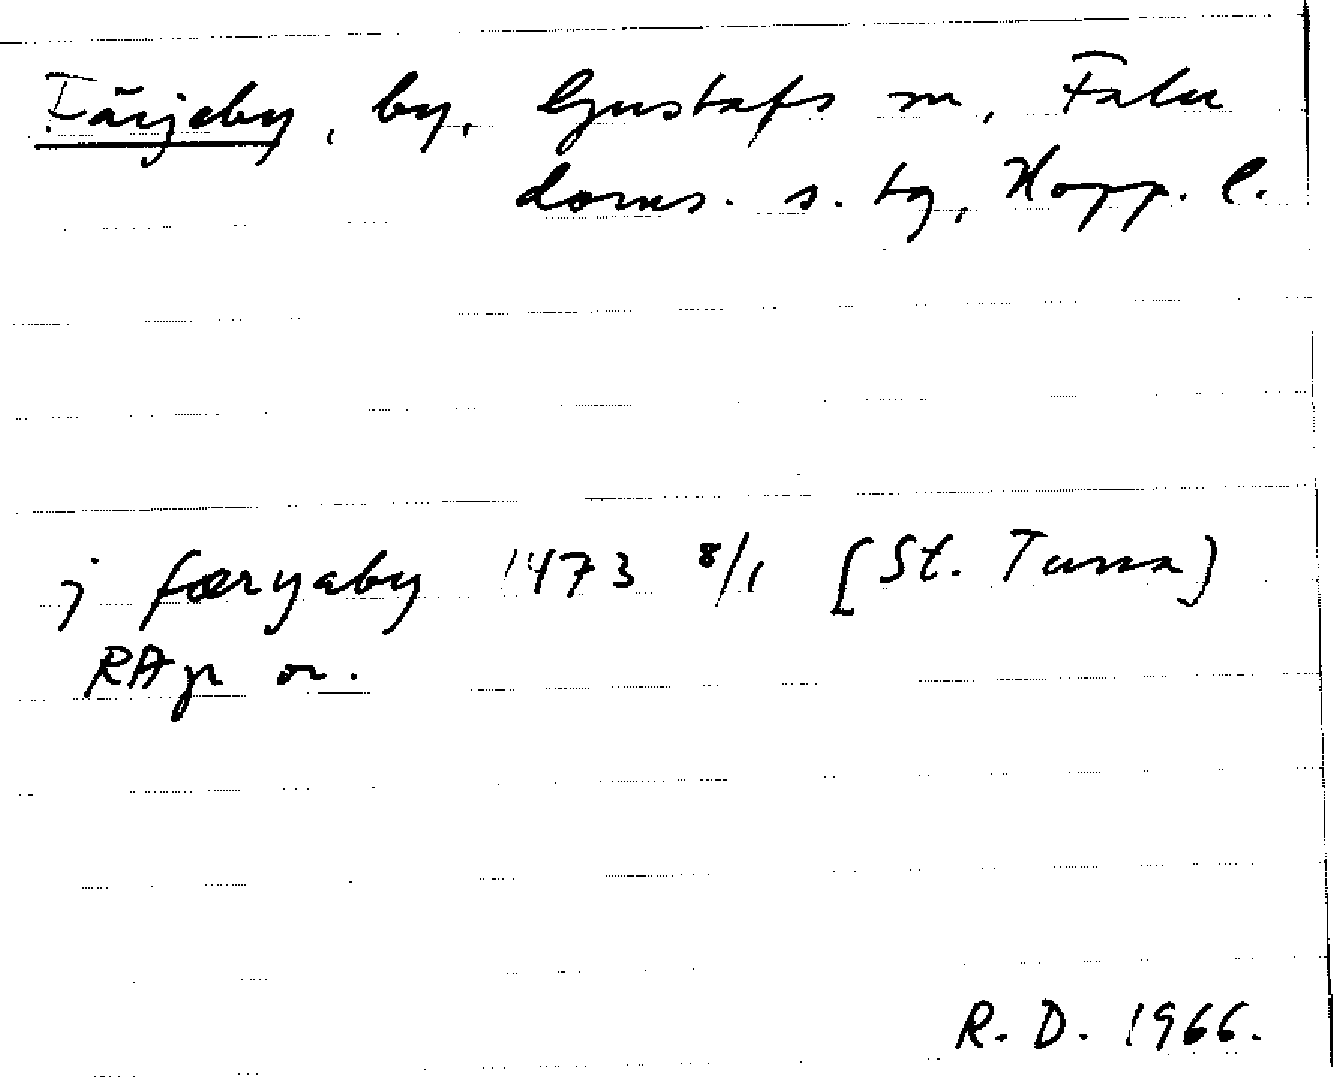 Färjeby, by, Gustafs sn, Falu
doms. s. tg, Kopp. l.
j færyaby 1473 8/1 [St. Tuna]
RAp or.
R. D. 1966.